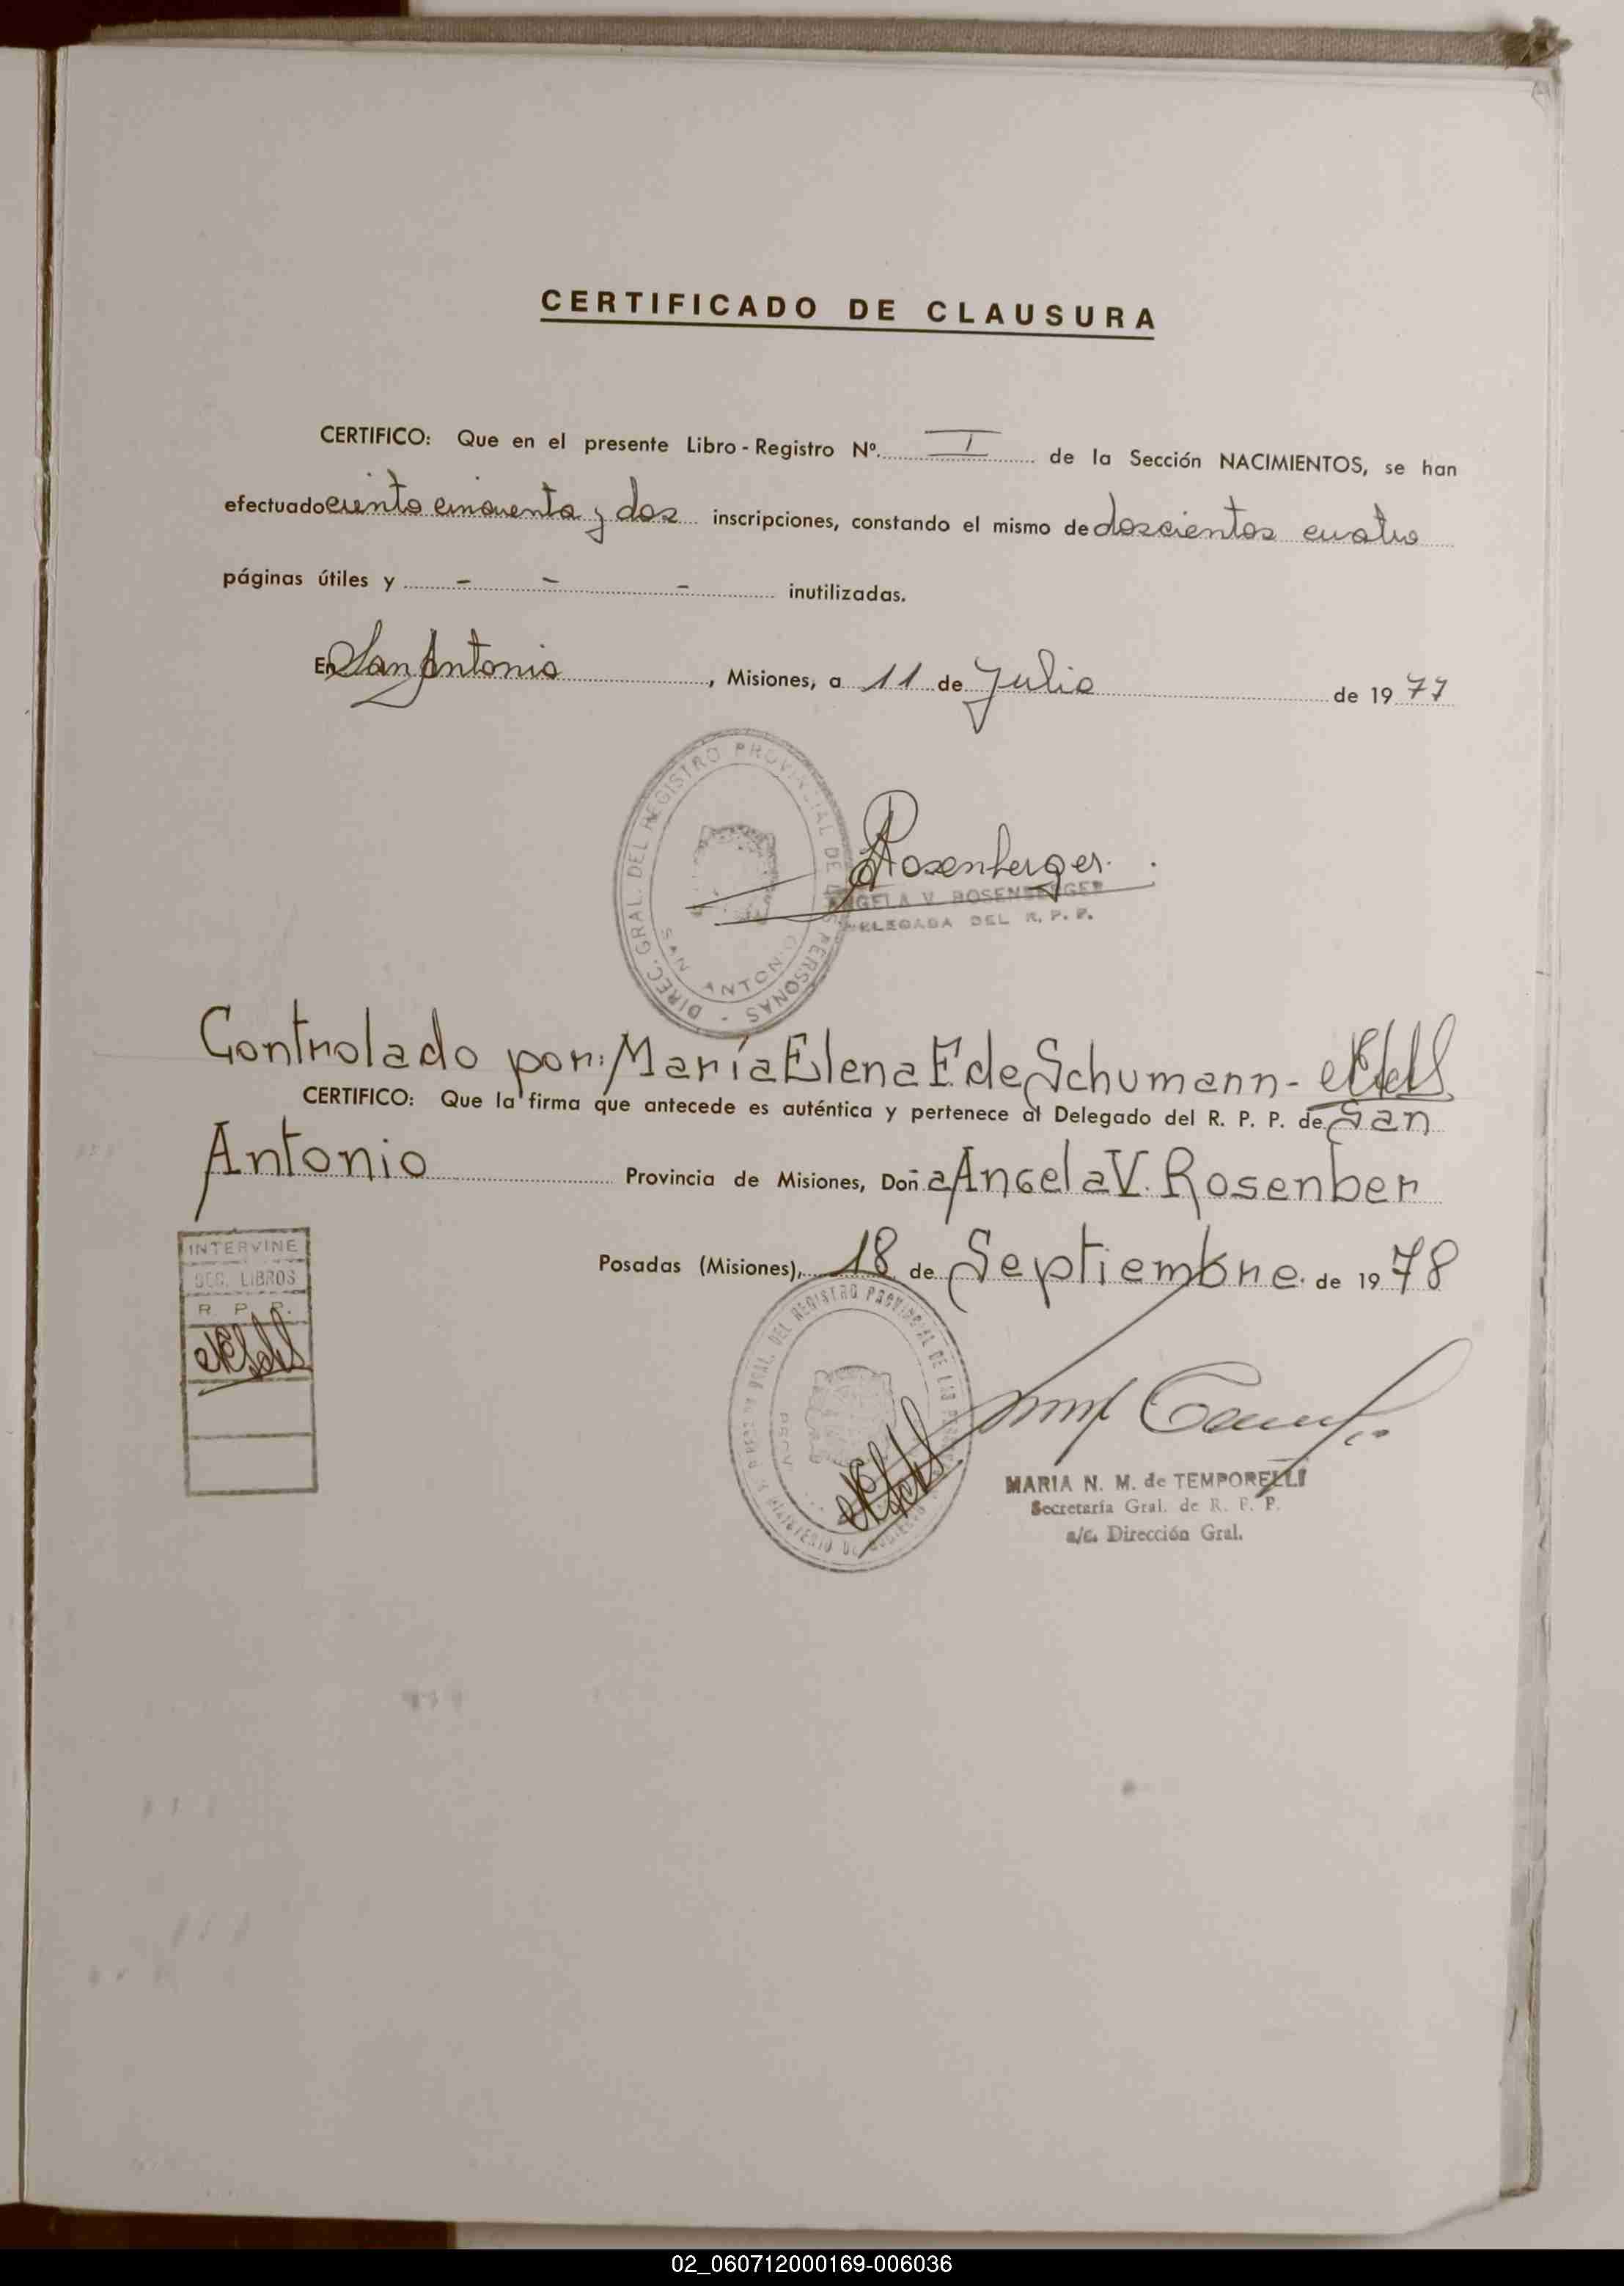 CERTIFICADO DE CLAUSURA
CERTIFICO: Que en el presente Libro - Registro Nº. I de la Sección NACIMIENTOS, se han
efectuado ciento cincuenta y dos inscripciones, constando el mismo de doscientos cuatro
páginas útiles y - - - inutilizadas.
En San Antonio, Misiones, a 11 de Julio de 1977
DIREC. GRAL. DEL REGISTRO PROVINCIAL DE LAS PERSONAS -
SAN ANTONIO
Rosenberger.
ANGELA V. ROSENBERGER
DELEGADA DEL R. P. P.
Controlado por: María Elena F. de Schumann -
CERTIFICO: Que la firma que antecede es auténtica y pertenece al Delegado del R. P. P. de San
Antonio Provincia de Misiones, Doña Angela V. Rosenber
Posadas (Misiones), 18 de Septiembre. de 1978
INTERVINE
SEC. LIBROS
R. P. P.
GRAL. DEL REGISTRO PROVINCIAL DE LAS
MINISTERIO DE GOBIERNO
MARIA N. M. de TEMPORELLI
Secretaría Gral. de R. P. P.
a/c. Dirección Gral.
02_060712000169-006036